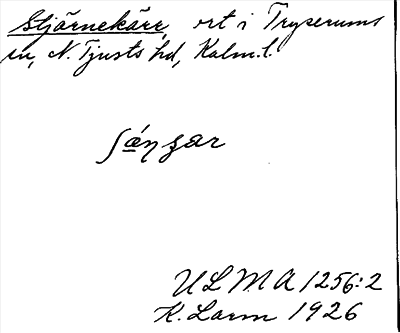 Stjärnekärr, ort i Tryserums
sn, N. Tjusts hd, Kalm. l.
ULMA 1256:2
K. Larm 1926